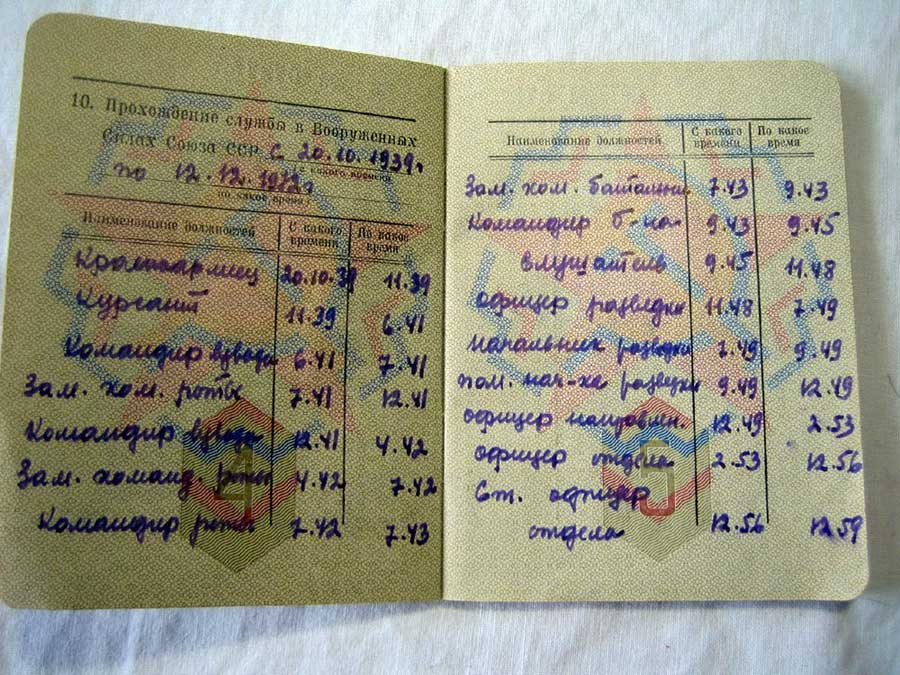 10. Прохождение службы в Вооруженных
Силах Союза ССР с 20.10.1939 г
с какого времени
по 12.12.1972 г
по какое время
Наименование должностей С какого времени По какое время
Красноармеец 20.10.39 11.39
Курсант 11.39 6.41
Командир взвода 6.41 7.41
Зам. ком. роты 7.41 12.41
Командир взвода 12.41 4.42
Зам. команд. роты 4.42 7.42
Командир роты 7.42 7.43
4
Наименование должностей С какого времени По какое время
Зам. ком. батальона 7.43 9.43
Командир б-на 9.43 9.45
слушатель 9.45 11.48
офицер разведки 11.48 7.49
начальник разведки 7.49 9.49
пом. нач-ка разведки 9.49 12.49
офицер направлен. 12.49 2.53
офицер отдела 2.53 12.56
Ст. офицер
отдела 12.56 12.59
5